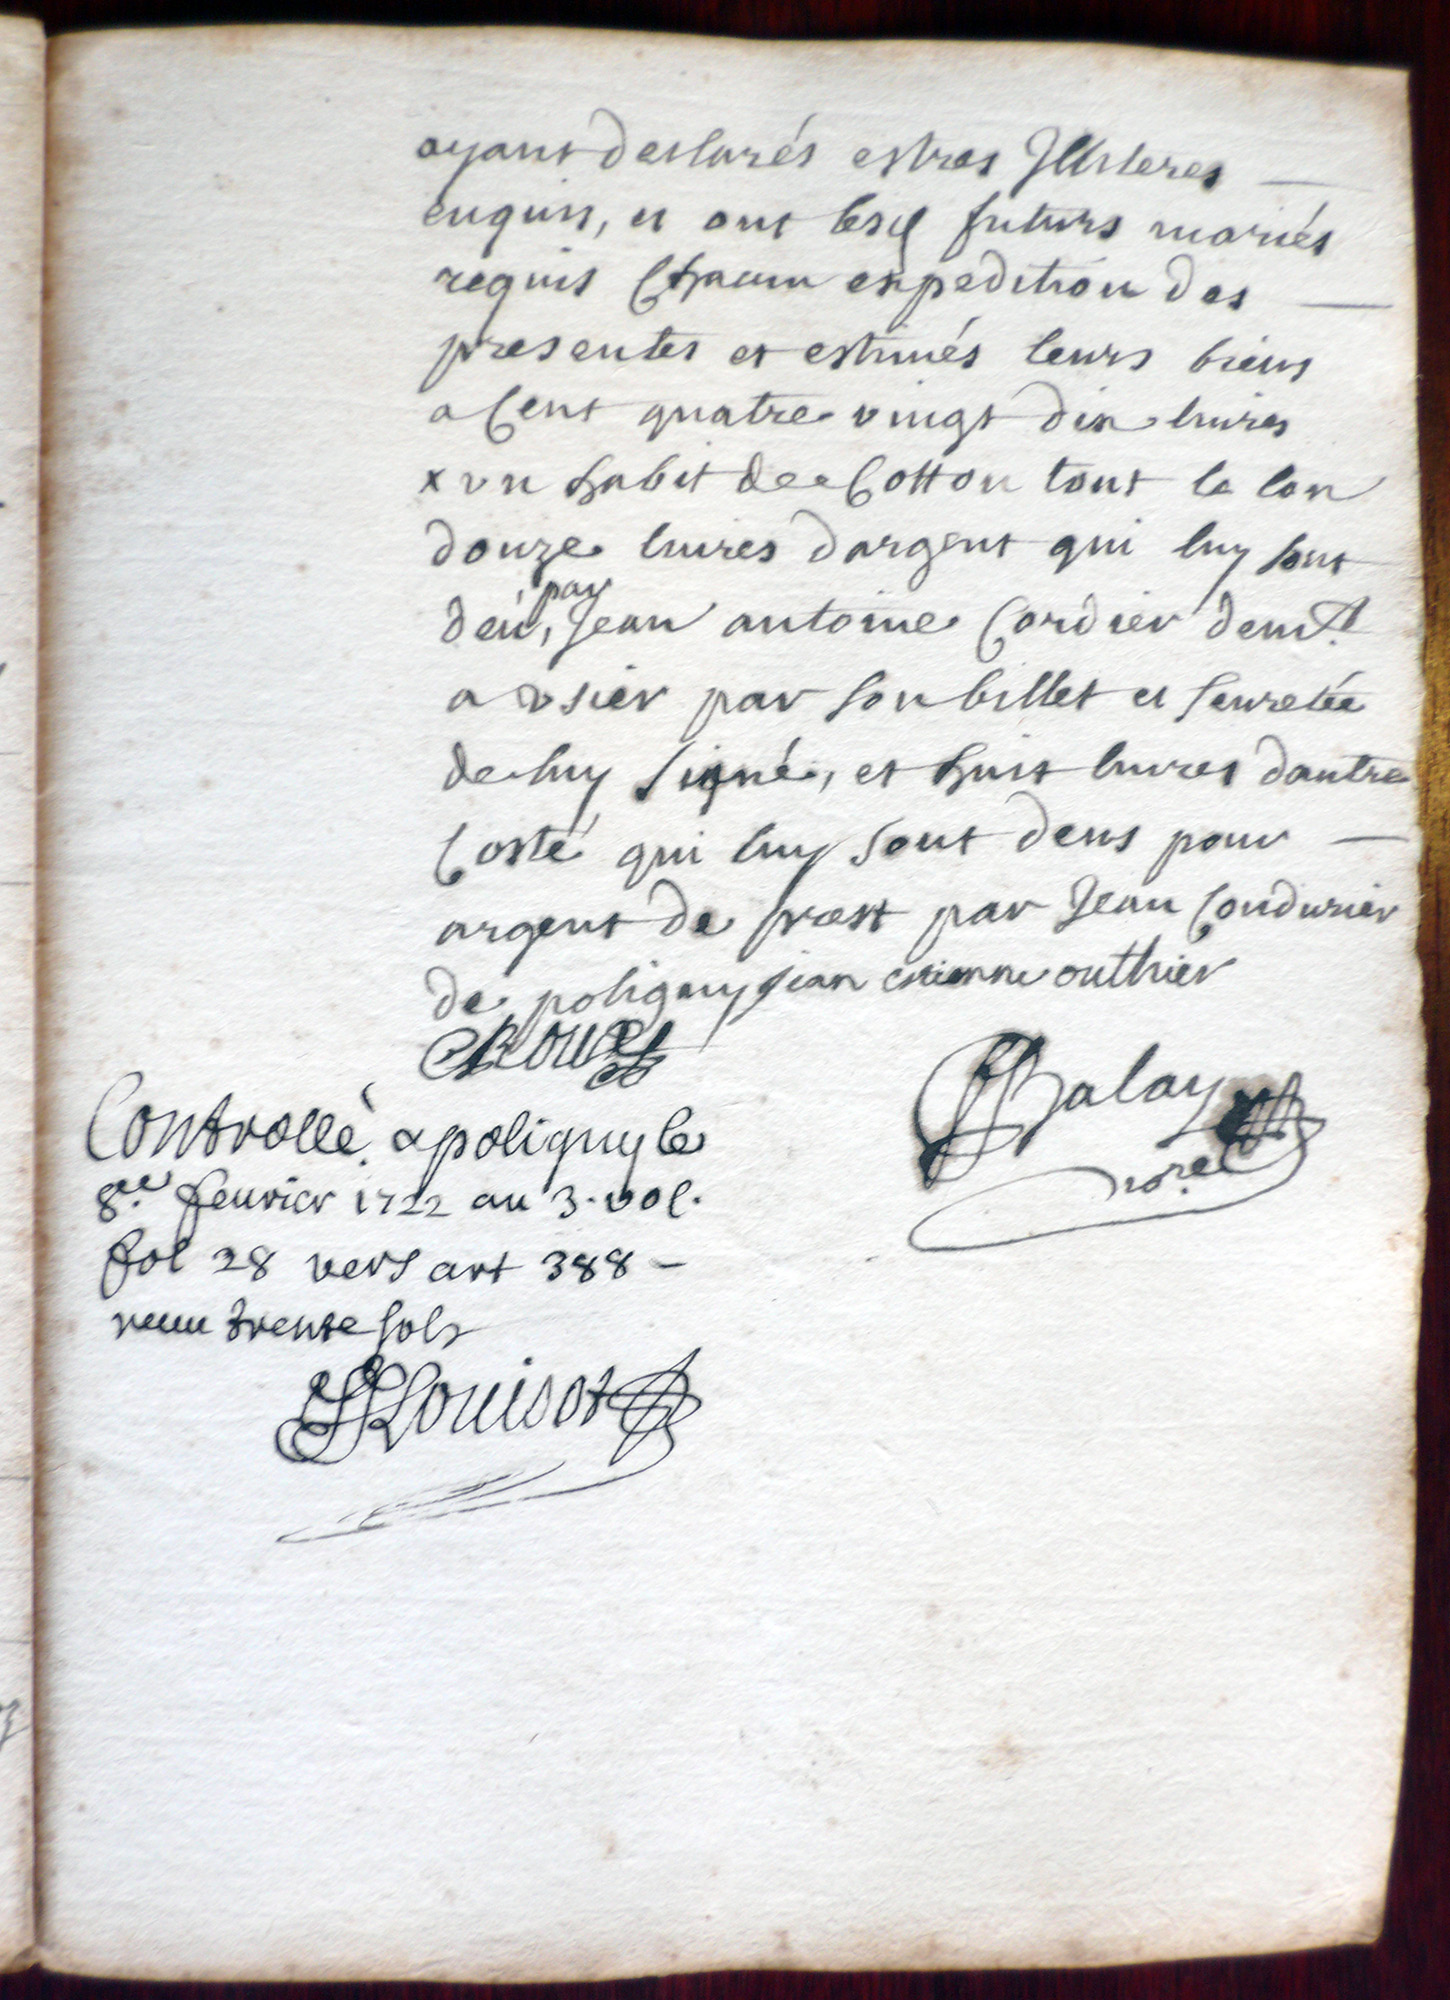 ayant desclarés estres Illsteres
enquis, et ont lesd futurs mariés
requis Chacun expedition des
presentes et estimés leurs biens
a Cent quatre vingt dix livres
x vn habit de Cotton tout le lon
douze livres dargent qui luy sont
deü, par Jean antoine Cordier demt
a vsier par son billet et seuretée
de luy signé, et huit livres dautre
Costé qui luy sont deus pour
argent de prest par Jean Condurier
de poligny jean estienne outhier
Roux
Balay
nore
Controllé a poligny le
8.e feurier 1722 au 3. vol.
fol 28 vers art 388 -
receu trente sols
Louisot